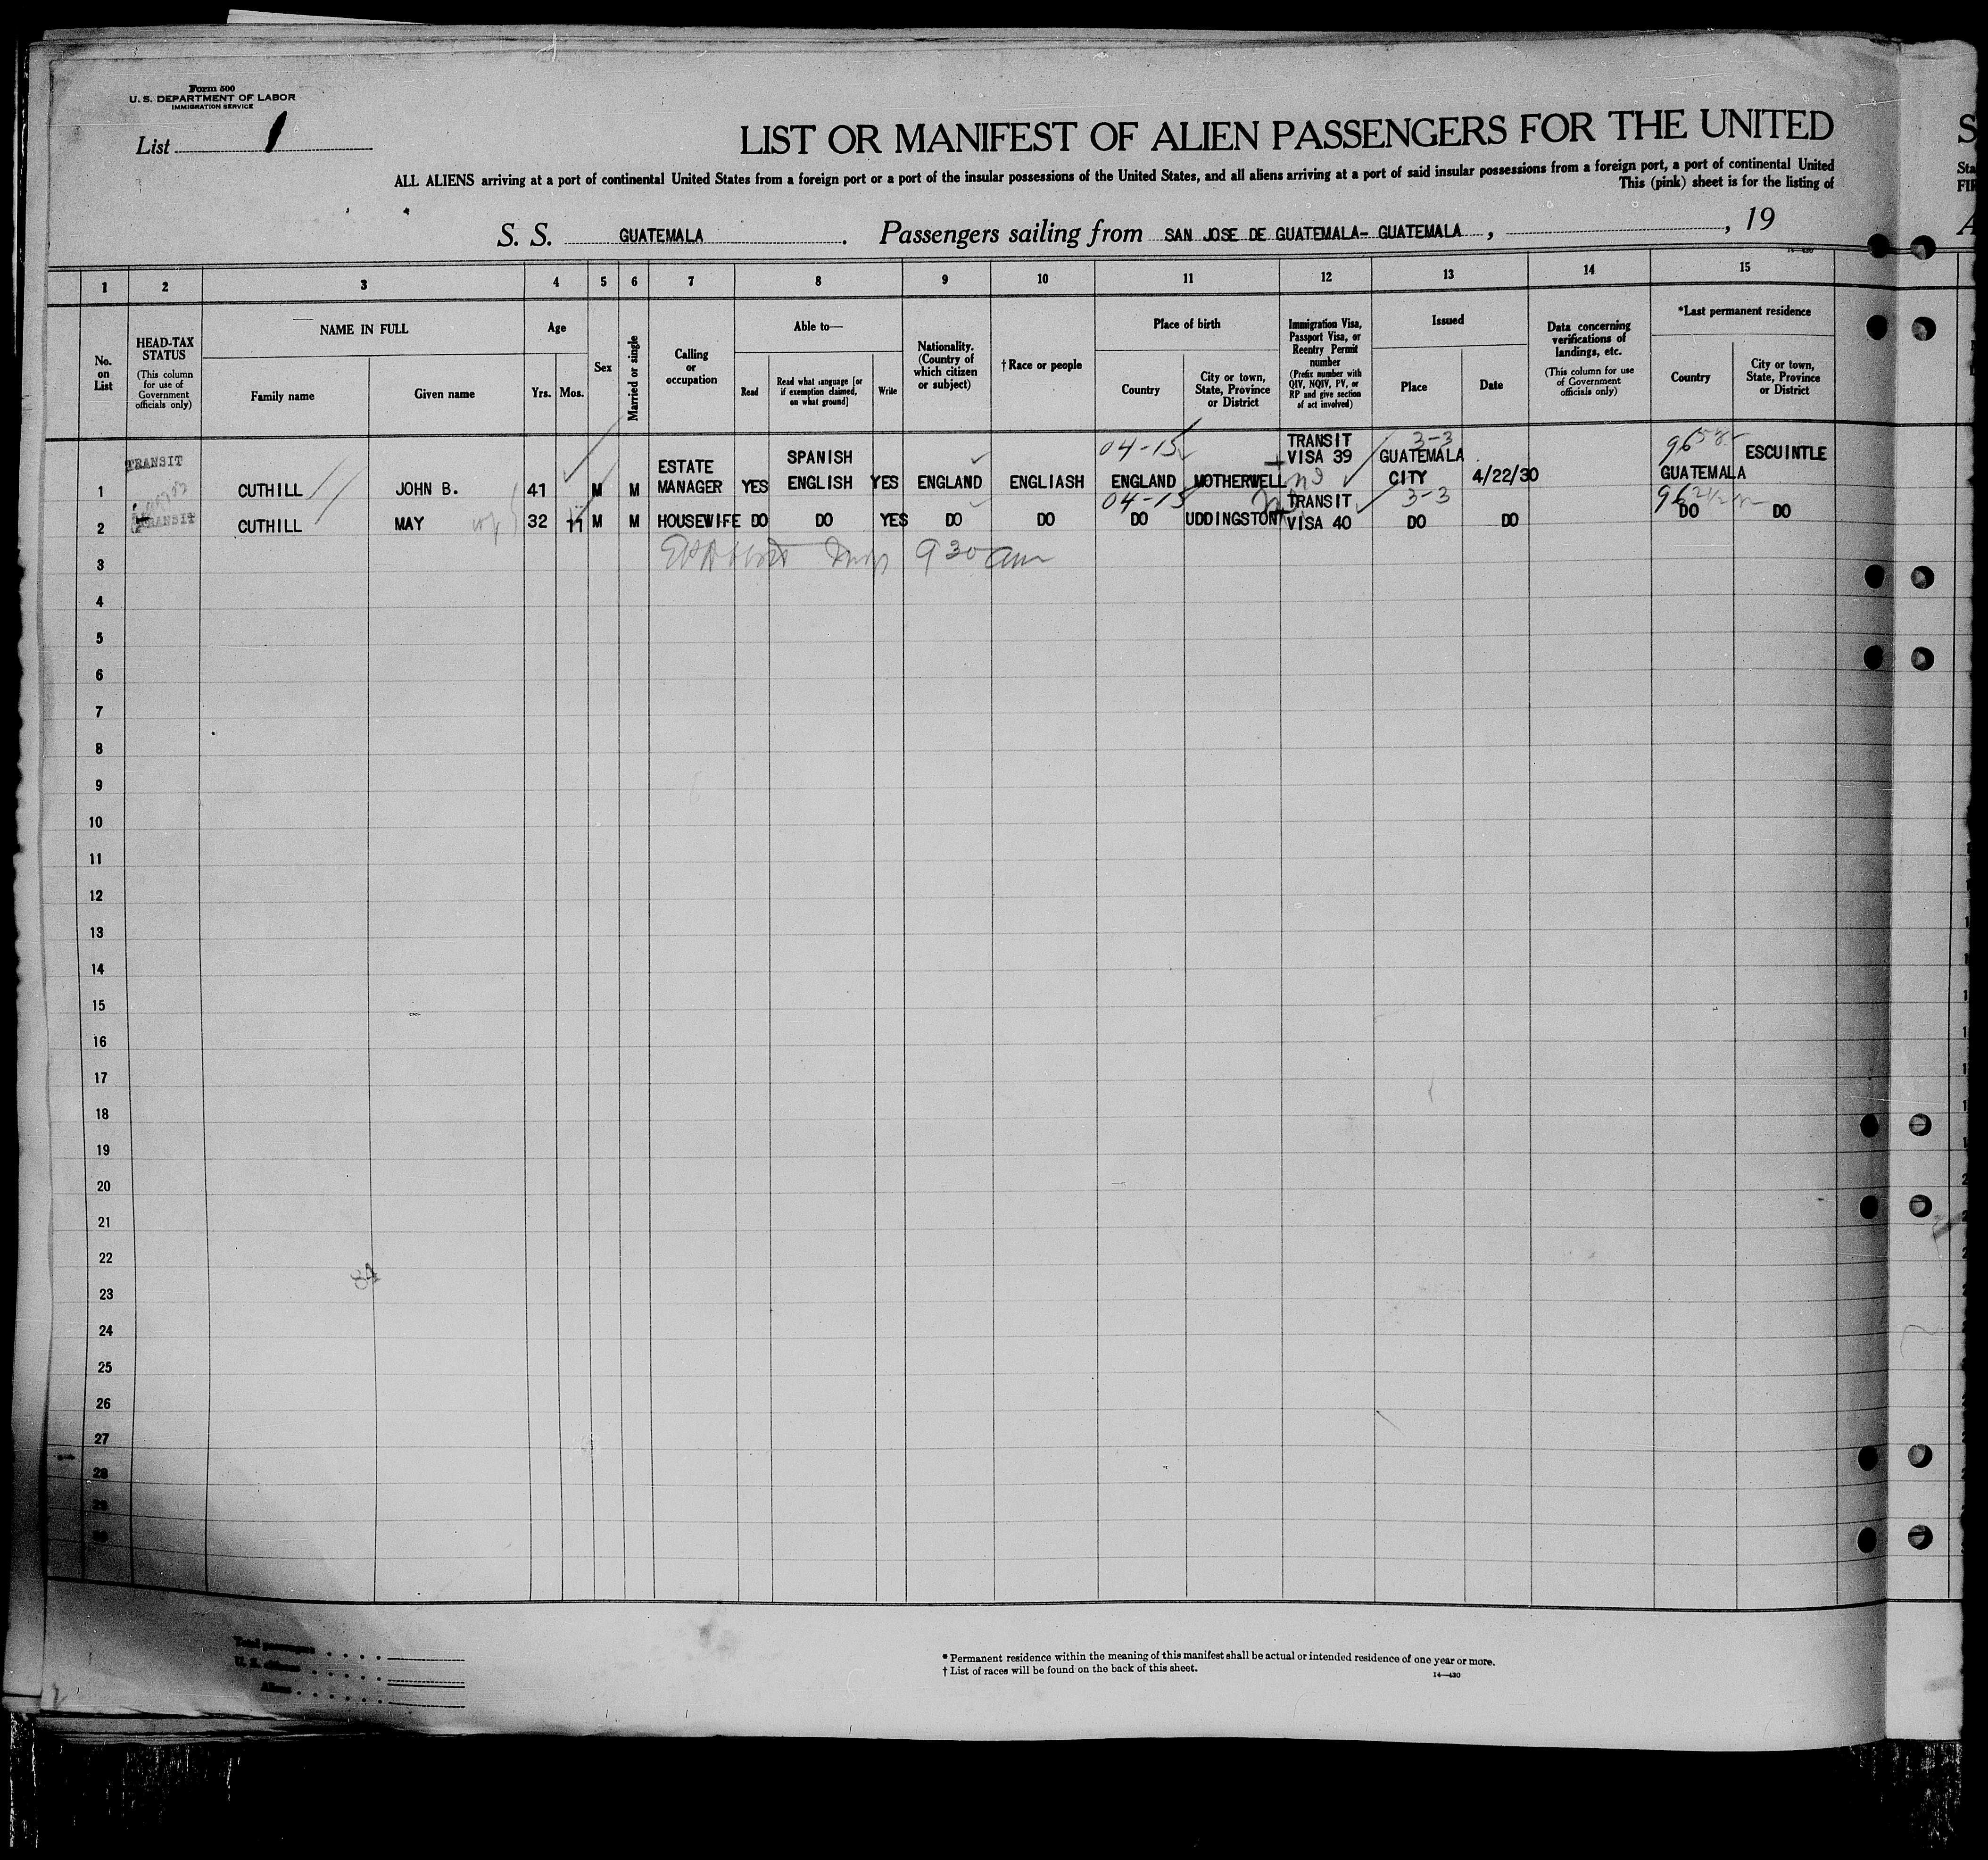 Form 500
U. S. DEPARTMENT OF LABOR
IMMIGRATION SERVICE
List 1
LIST OR MANIFEST OF ALIEN PASSENGERS FOR THE UNITED
ALL ALIENS arriving at a port of continental United States from a foreign port or a port of the insular possessions of the United States, and all aliens arriving at a port of said insular possessions from a foreign port, a port of continental United
This (pink) sheet is for the listing of
S. S. GUATEMALA. Passengers sailing from SAN JOSE DE GUATEMALA- GUATEMALA, , 19
1 2 3 4 5 6 7 8 9 10 11 12 13 14 15
No. on List
HEAD-TAX STATUS (This column for use of Government officials only)
NAME IN FULL
Family name
Given name
Age
Yrs.
Mos.
Sex
Married or single
Calling or occupation
Able to—
Read
Read what language [or if exemption claimed, on what ground]
Write
Nationality. (Country of which citizen or subject)
†Race or people
Place of birth
Country
City or town, State, Province or District
Immigration Visa, Passport Visa, or Reentry Permit number (Prefix number with QIV, NQIV, PV, or RP and give section of act involved)
Issued
Place
Date
Data concerning verifications of landings, etc. (This column for use of Government officials only)
*Last permanent residence
Country
City or town, State, Province or District
04-15 3-3 96
1 TRANSIT CUTHILL JOHN B. 41 M M ESTATE MANAGER YES SPANISH ENGLISH YES ENGLAND ENGLIASH ENGLAND MOTHERWELL TRANSIT VISA 39 GUATEMALA CITY 4/22/30 GUATEMALA ESCUINTLE
04-15 3-3 96
2 TRANSIT CUTHILL MAY 32 11 M M HOUSEWIFE DO DO YES DO DO DO UDDINGSTON TRANSIT VISA 40 DO DO DO DO
9 30 am
3
4
5
6
7
8
9
10
11
12
13
14
15
16
17
18
19
20
21
22
23
24
25
26
27
28
29
30
Total passengers
U. S. citizens
Aliens
* Permanent residence within the meaning of this manifest shall be actual or intended residence of one year or more.
† List of races will be found on the back of this sheet.
14—430